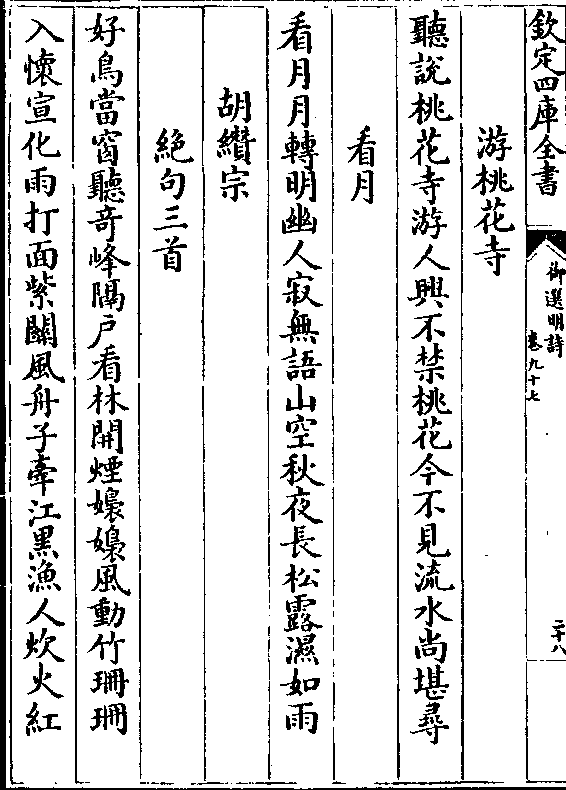 欽定四庫全書
御選明詩
卷九十七
二十八
游桃花寺
聽說桃花寺游人興不禁桃花今不見流水尚堪尋
看月
看月月轉明幽人寂無語山空秋夜長松露濕如雨
胡纘宗
絕句三首
好鳥當窗聽奇峰隔戶看林開煙嬝嬝風動竹珊珊
入懷宣化雨打面紫關風舟子牽江黑漁人炊火紅